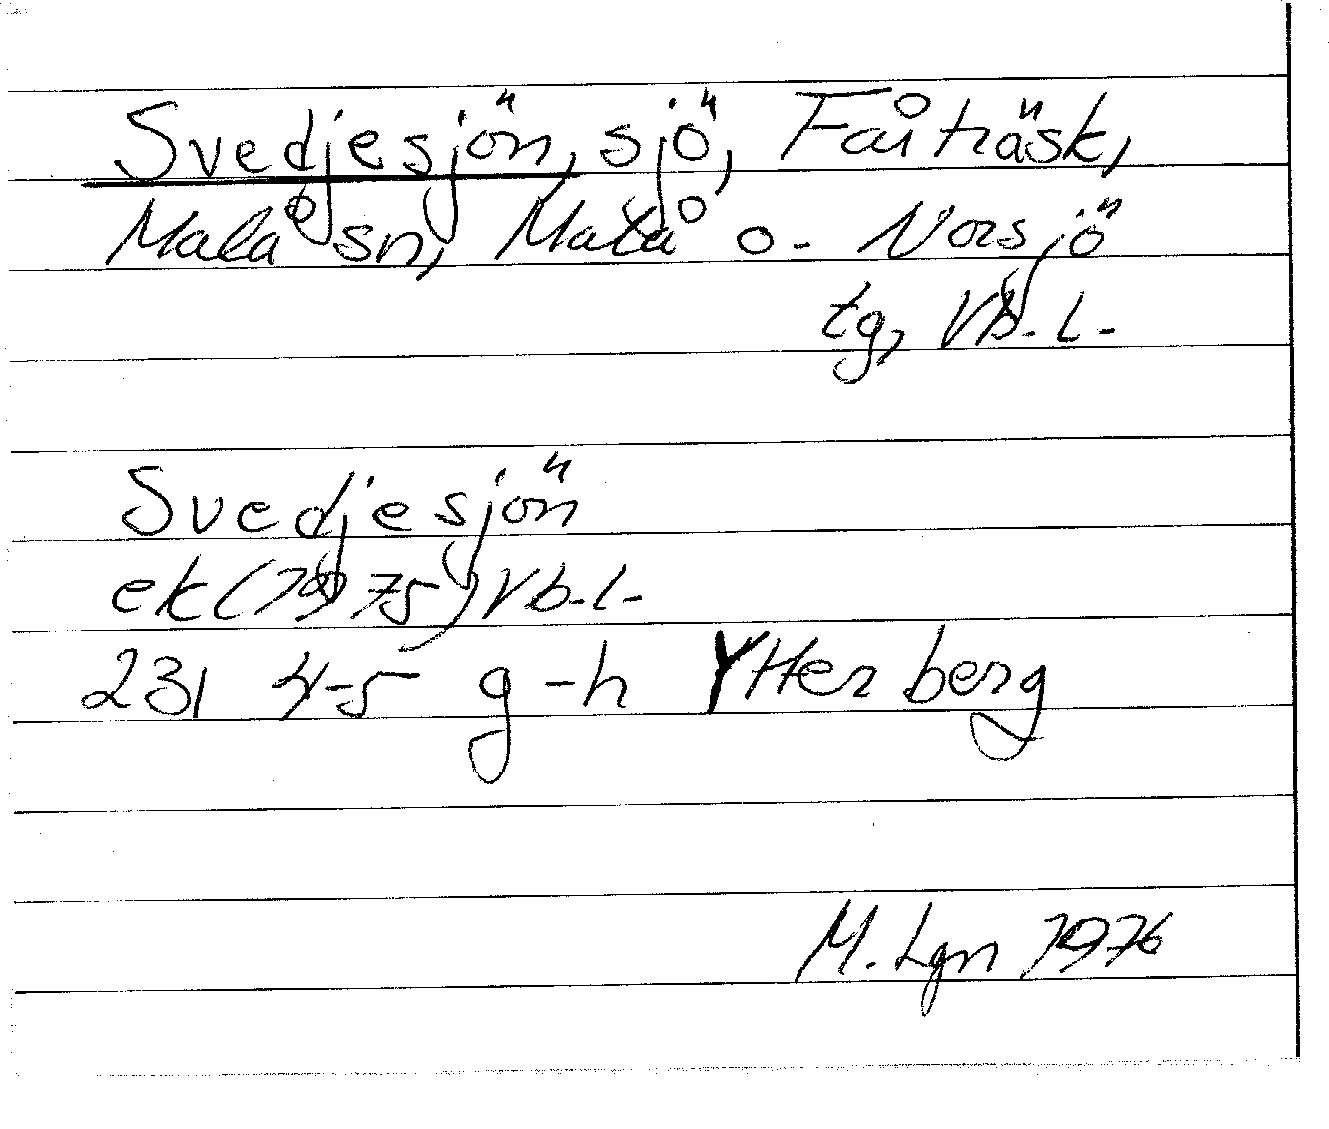 Svedjesjön, sjö, Fårträsk,
Malå sn, Malå o. Norsjö
tg, Vb. l.
Svedjesjön
ek (1975) Vb. l.
231 4-5 g-h Ytterberg
M. Lgn 1976